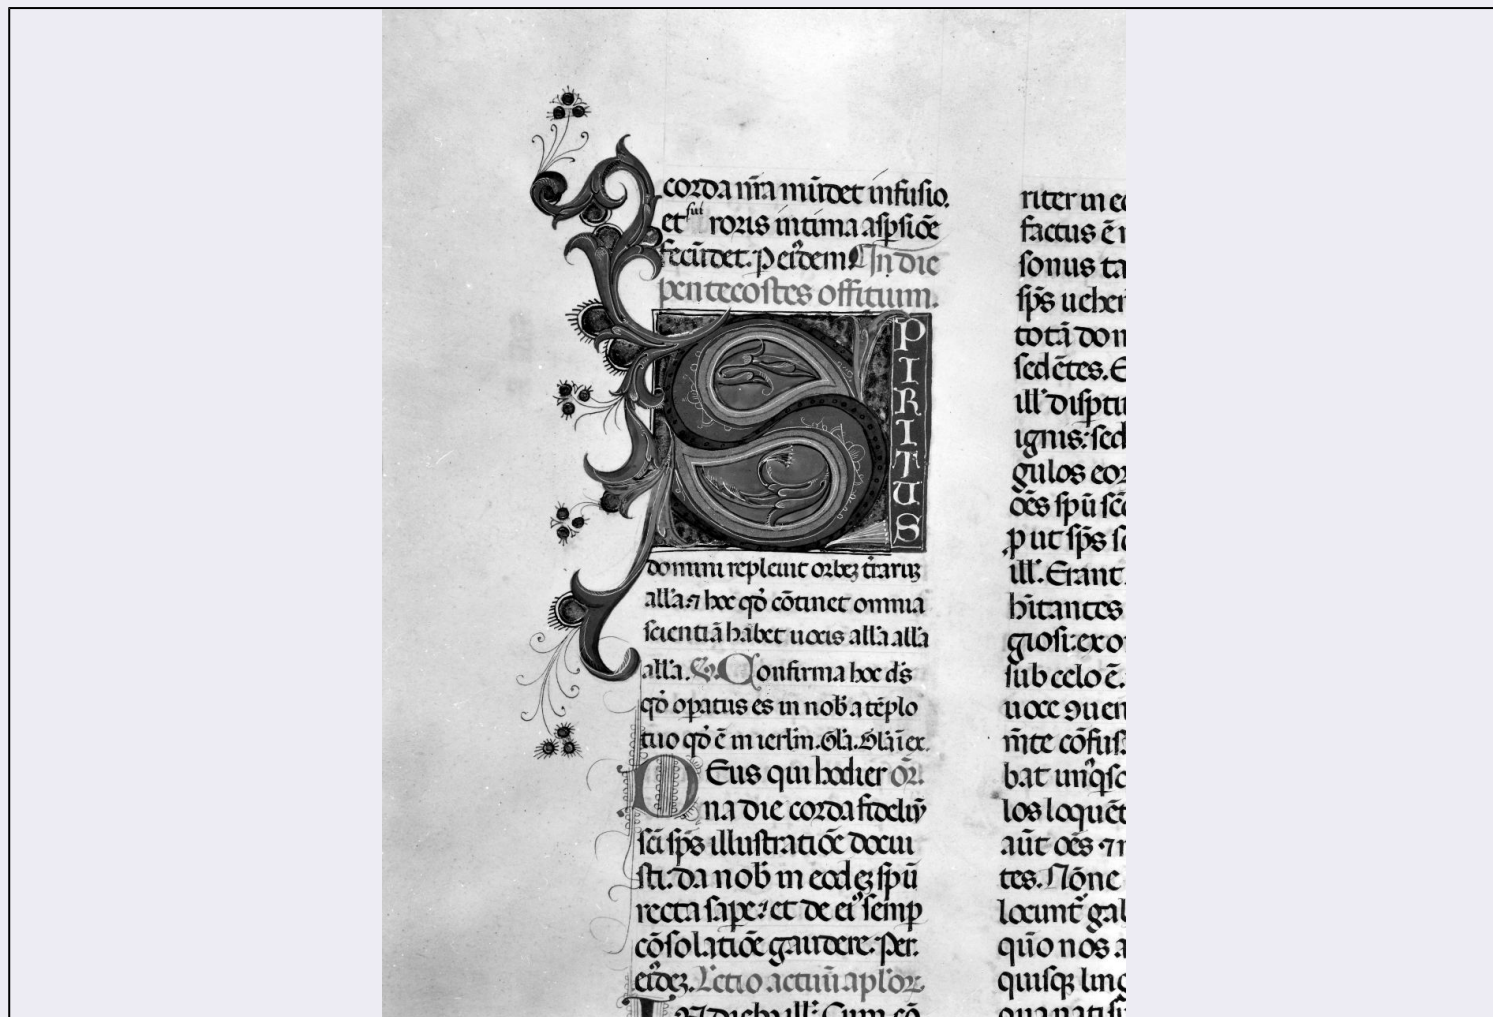 corda nr̄a mūdet infusio.
et sui roris intima asp̄siōe
fecūdet. P eūdem In die
pentecostes offitium.
SPIRITUS
domini repleuit orbeꝫ t̄raꝝ
all'a. ⁊ hoc qd̄ cōtinet omnia
scientiā habet uocis all'a all'a
all'a. Confirma hoc d̄s
qd̄ opatus es in nob̄ a tēplo
tuo qd̄ ē in ierlm̄. Gl'a.
DEus qui hodier or̄.
na die corda fideliū
sc̄i sp̄s illustratiōe docui
sti. da nob̄ in eodeꝫ sp̄u
recta sapē: et de eī semp
cōsolatiōe gaudere. Per.
eūdeꝫ. Lectio actuū ap̄loꝝ.
IN dieb ill': Cum
riter in eo
factus ē r
sonus ta
sp̄s uehe
totā do
sedētes. E
ill' disp̄ti
ignis: sed
gulos eoꝝ
oēs sp̄u sc̄o
p ut sp̄s s
ill'. Erant
hītantes
giosi: ex o
sub celo ē.
uoce ꝯuen
m̄te cōfus
bat unꝰqsq
los loquēt
aūt oēs ⁊ m
tes. Nōne
locunt̄ gal
quō nos a
quisqꝫ linḡ
qua nati s